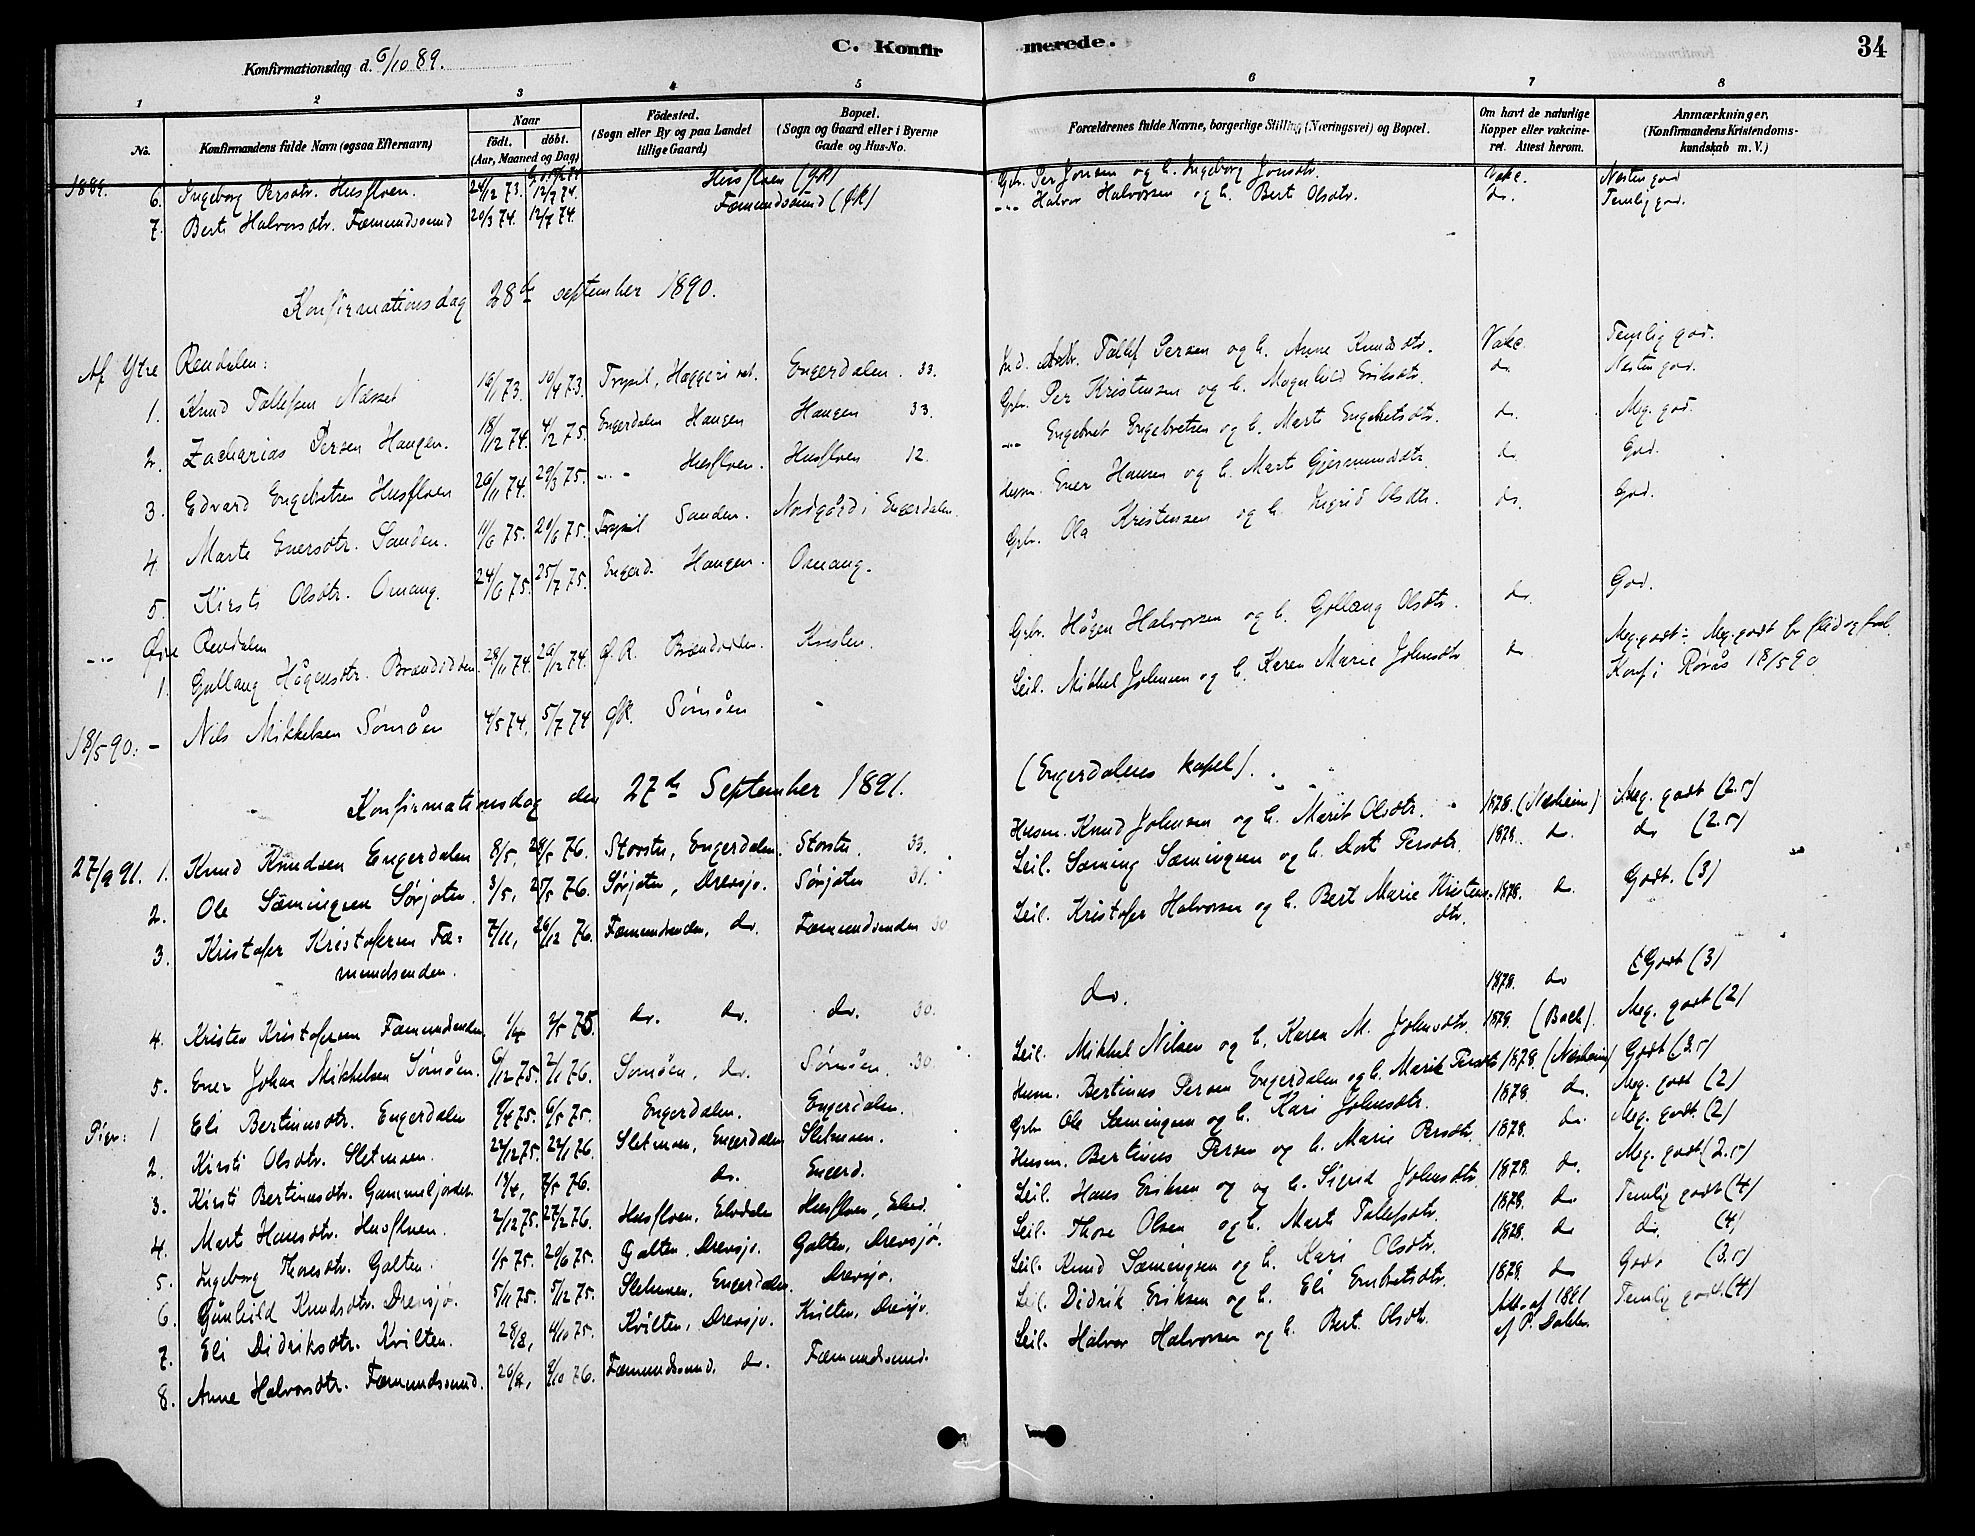 C. Konfirmerede. 34
Konfirmationsdag d. 6/10 89.
1 2 3 4 5 6 7 8
No. Konfirmandens fulde Navn (ogsaa Efternavn) Naar født. døbt. (Aar, Maaned og Dag) Födested. (Sogn eller By og paa Landet tillige Gaard) Bopæl. (Sogn og Gaard eller i Byerne Gade og Hus-No. Forældrenes fulde Navne, borgerlige Stilling (Næringsvei) og Bopæl. Om havt de naturlige Kopper eller vakcineret. Attest herom. Anmærkninger, (Konfirmandens Kristendomskundskab m. V.)
1889. 6. Ingeborg Persdtr. Husfloen. 24/12 73. 12/7 74. Husfloen Gbr. Per Jonsen og h. Ingeborg Jonsdtr. Vakc. Næsten god
7. Berte Halvorsdtr. Fæmundssund 20/3 74. 12/7 74. Fæmundssund -"- Halvor Halvorsen og h. Bert Olsdtr. do. Temlig god.
Konfirmationsdag 28de september 1890.
Af Ytre Rendalen:
1. Knud Tollefsen Næsset 16/1 73. 19/4 73. Trysil, Engerdalen. 33. Tollef Persen og h. Anne Knudsdtr. Vakc. Temlig god.
2. Zacharias Persen Haugen. 18/12 74. 4/2 75. Engerdalen Haugen Haugen 33. Gbr. Per Kristensen og h. Magnhild Eriksdtr. do. Næsten god.
3. Edvard Engebretsen Husfloen 26/11 74. 29/3 75. -"- Husfloen. Husfloen 12. -"- Engebret Engebretsen og h. Marte Engebretsdtr. do. Meg. god.
4 Marte Enersdtr. Sanden. 11/6 75. 20/6 75. Trysil Sanden. Nordgård i Engerdalen. Husm. Ener Hansen og h. Mart Gjermundsdtr. do God.
5. Kirsti Olsdtr. Omang. 24/6 75. 25/7 75. Engerd. Haugen. Omang. Gbr. Ola Kristensen og h. Ingrid Olsdtr. do. God.
-"- Øvre Rendalen
1. Gullaug Hågensdtr. Brændvolden 28/11 74. 26/12 74. Ø.R. Kvislen. Gbr. Hågen Halvorsen og h. Gollaug Olsdtr. do. God.
18/5 90. - Nils Mikkelsen Sømåen 4/5 74. 5/7 74 ØR. Sømåen - Leil. Mikkel Johnsen og h. Karen Marie Johnsdtr do Meg. godt: Meg. godt for flid og forh. Konf. i Rørås 18/5 90
Konfirmationsdag den 27de September 1891. (Engerdalens kapel).
27/9 91. 1. Knud Knudsen Engerdalen 8/5, 28/5 76. Storsten, Engerdalen. Storsten. 33. Husm. Knud Johnsen og h. Marit Olsdtr. 1878. (Næsheim) Meg. godt (2.5)
2. Ole Sæmingsen Sørjoten. 3/5, 25/5 76. Sørjoten, Drevsjø. Sørjoten 31. Leil. Sæming Sæmingsen og h. Dort Persdtr. 1878. do. do (2.5)
3. Kristofer Kristofersen Fæmundsenden. 7/11, 26/12 76. Fæmundsenden, do. Fæmundsenden 30 Leil. Kristofer Halvorsen og h. Bert Marie Kristensdtr. 1878. do. Godt. (3)
4. Kristen Kristofersen Fæmundsenden. 1/4 2/5 75 do. do. do. 30. do. 1878. do Godt (3)
5. Ener Johan Mikkelsen Sømåen. 6/12 75. 2/1 76. Sømåen, do. Sømåen. 30. Leil. Mikkel Nilsen og h. Karen M. Johnsdtr. 1879. (Bach). Meg. godt (2)
Piger: 1 Eli Bertinusdtr. Engerdalen 9/4 75. 6/5 75. Engerdalen. Engerdalen. Husm. Bertinus Persen Engerdalen og h. Marie Persdtr 1878. (Næsheim) Godt (3.5)
2. Kirsti Olsdtr. Sletmoen. 24/12 75. 24/1 76. Sletmoen, Engerdalen Sletmoen. Gbr. Ole Sæmingsen og h. Kari Johnsdtr. 1878. do. Meg. godt (2)
3. Kirsti Bertinusdtr. Gammeljordet. 19/4, 7/5 76. do. Engerd. Husm. Bertinus Persen og h. Marie Persdtr. 1878. do. Meg. godt (2)
4. Mart Hansdtr. Husfloen. 2/12 75. 27/2 76. Husfloen, Elvdalen Husfloen, Elvd. Leil. Hans Eriksen og og h. Sigrid Johnsdtr. 1878. do. Meg. godt (2.5)
5. Ingeborg Thoresdtr. Galten. 1/5 75. 20/6 75. Galten, Drevsjø. Galten, Drevsjø. Leil. Thore Olsen og h. Marte Tollefsdtr. 1878. do Temlig godt (4)
6. Gunhild Knudsdtr. Drevsjø. 5/11 75. 5/12 75. Sletmoen, Engerdalen. Drevsjø. Leil. Knud Sæmingsen og h. Kari Olsdtr. 1878. do do. (4)
7. Eli Didriksdtr. Kvilten. 28/8, 4/10 75. Kvilten, Drevsjø. Kvilten, Drevsjø. Leil. Didrik Eriksen og h. Eli Embretsdtr. 1879. do Godt (3.5)
8. Anne Halvorsdtr. Fæmundssund. 26/8, 9/10 76. Fæmundssund, do. Fæmundssund. Leil. Halvor Halvorsen og h. Bert. Olsdtr. Att. af 1891 af P. Dahlen Temlig godt. (4)